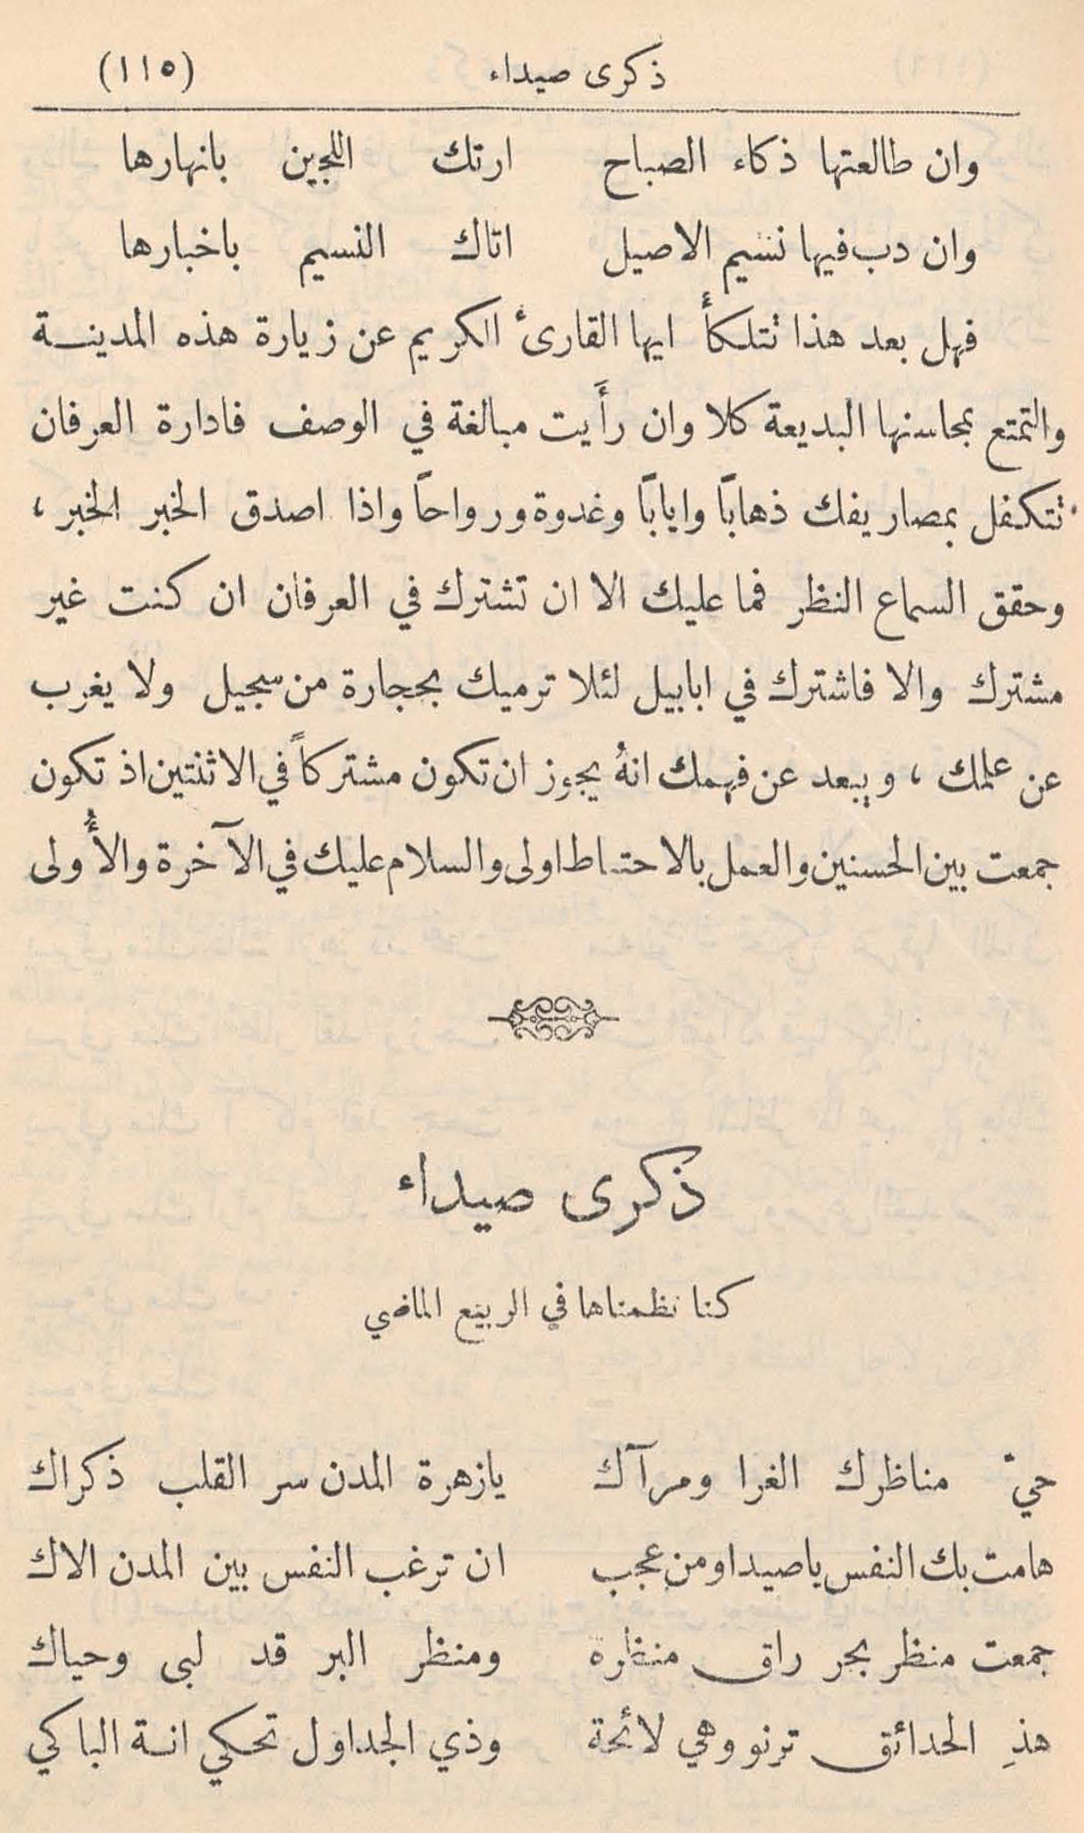 ذكرى صيداء (١١٥)
وان طالعتها ذكاء الصباح ارتك اللجين بانهارها
وان دب فيها نسيم الاصيل اتاك النسيم باخبارها
فهل بعد هذا تتلكأ ايها القارئ الكريم عن زيارة هذه المدينــة
والتمتع بمحاسنها البديعة كلا وان رأيت مبالغة في الوصف فادارة العرفان
تتكفل بمصاريفك ذهاباً واياباً وغدوة ورواحاً واذا اصدق الخبر الخبر ،
وحقق السماع النظر فما عليك الا ان تشترك في العرفان ان كنت غير
مشترك والا فاشترك في ابابيل لئلا ترميك بحجارة من سجيل ولا يغرب
عن علمك ، ويبعد عن فهمك انهُ يجوز ان تكون مشتركاً في الاثنتين اذ تكون
جمعت بين الحسنين والعمل بالاحتياط اولى والسلام عليك في الآخرة والأولى
ذكرى صيداء
كنا نظمناها في الربيع الماضي
حيّ مناظرك الغرا ومرآك يازهرة المدن سر القلب ذكراك
هامت بك النفس ياصيدا ومن عجب ان ترغب النفس بين المدن الاك
جمعت منظر بحر راق منظرة ومنظر البر قد لبى وحياك
هذِ الحدائق ترنو وهي لائحة وذي الجداول تحكي انـة الباكي